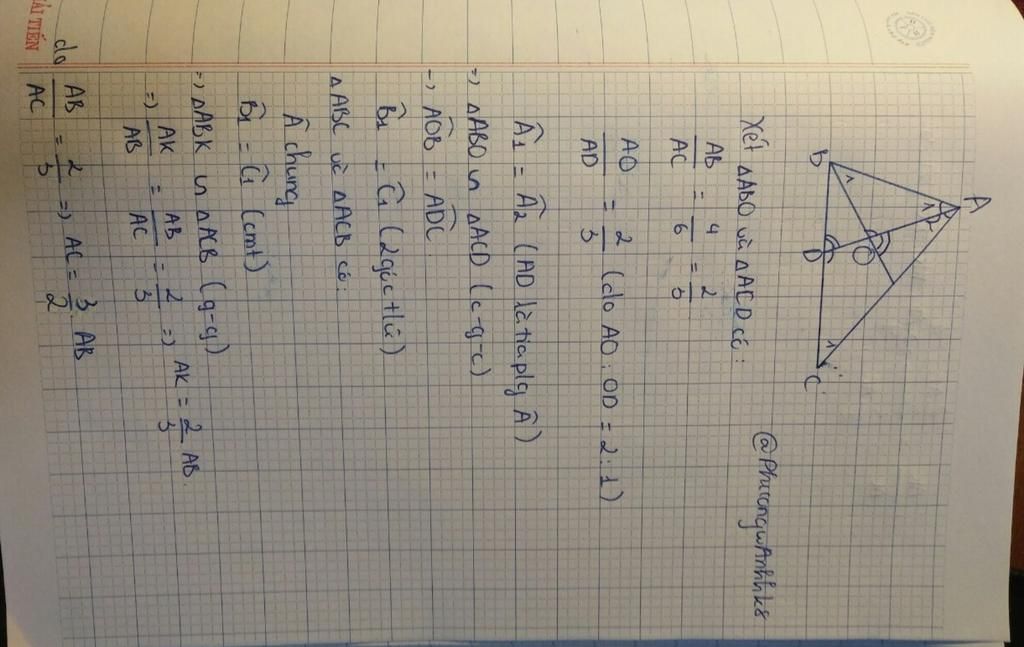 A
B
C
D
O
1
1
2
1
@PhuongwAnhhk8
Xét △ABO và △ACD có:
AB/AC = 4/6 = 2/3
AO/AD = 2/3 (do AO : OD = 2 : 1)
Â1 = Â2 (AD là tia p/g Â)
=> △ABO ∽ △ACD (c-g-c)
-> AOB = ADC
B̂1 = Ĉ1 (2 góc t/ứ)
△ABC và △ACB có:
Â chung
B̂1 = Ĉ1 (cmt)
=> △ABK ∽ △ACB (g-g)
=> AK/AB = AB/AC = 2/3 => AK = 2/3 AB.
do AB/AC = 2/3 => AC = 3/2 AB
ẢI TIẾN